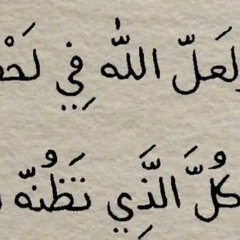 لَعَلَّ اللّٰه فِي لَحْ
كُلَّ الَّذِي تَظُنّه